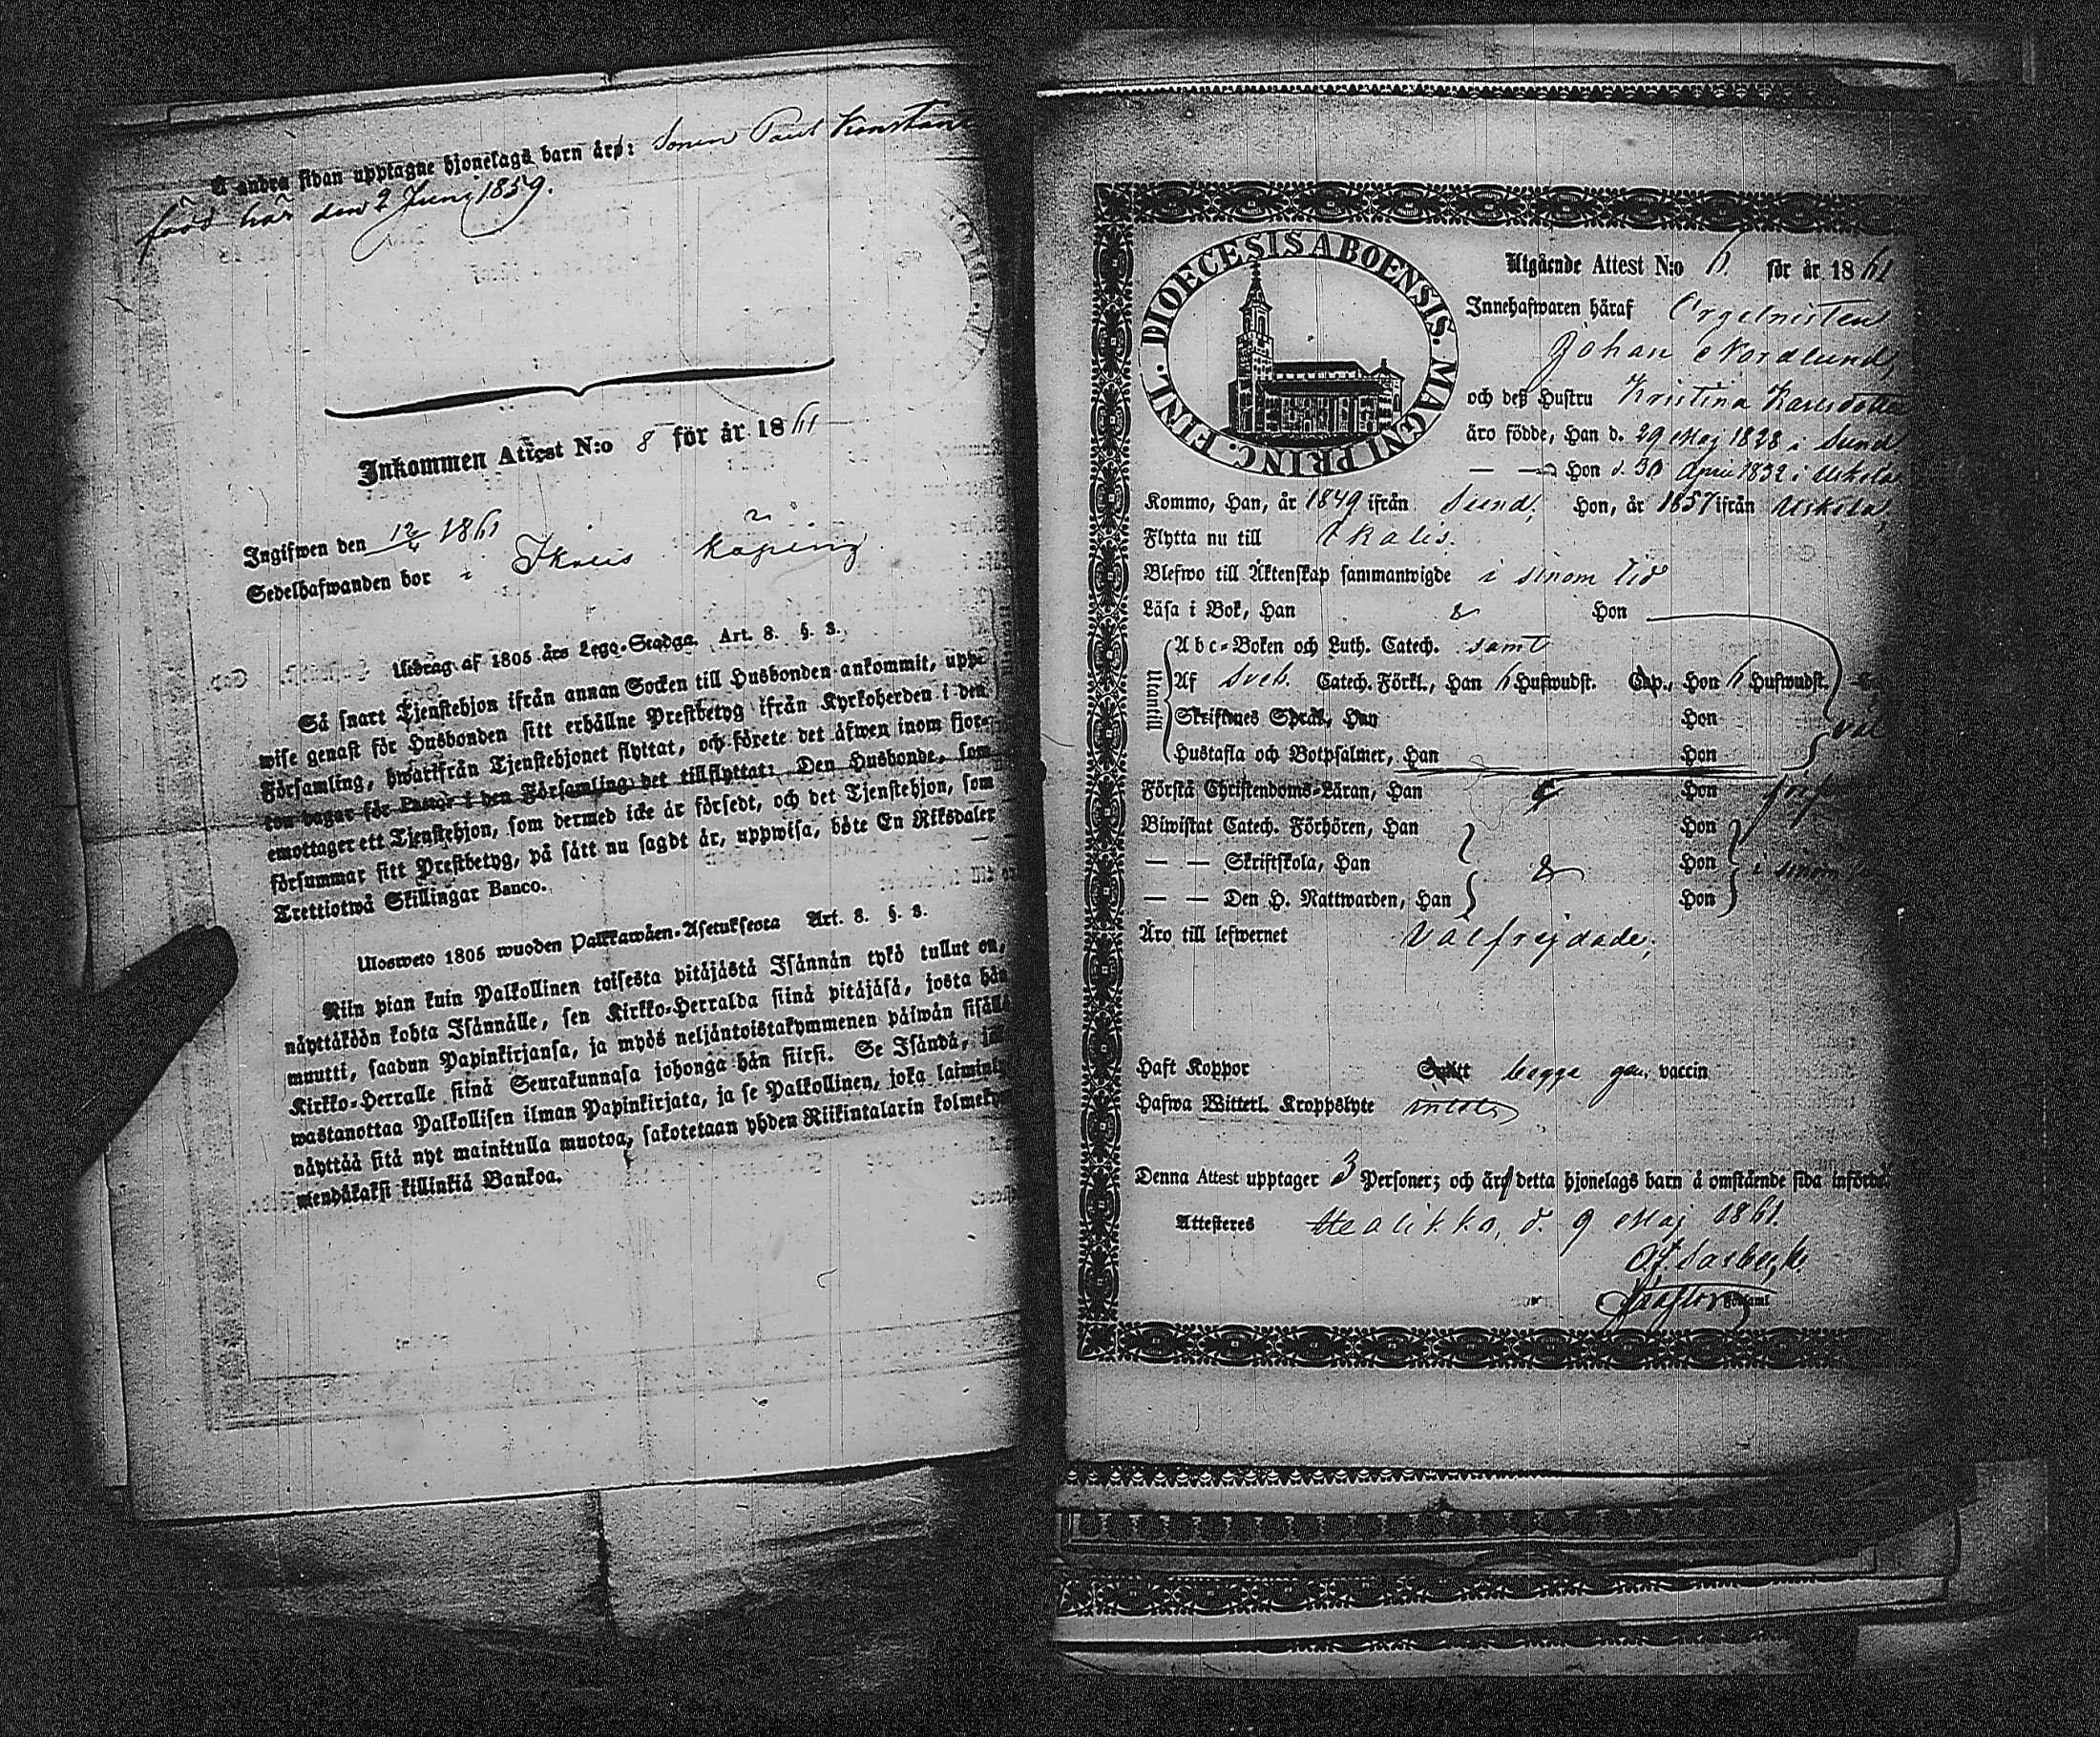 Å andra sidan upptagne hjonelags barn äro: Sonen Paul Konstant
född här den 2 Juni 1859.
Inkommen Attest N:o 8 för år 1861
Ingifwen den 12/4 1861
Sedelhafwanden bor i Ikalis köping
Utdrag af 1805 års Lego-Stadga. Art. 8. §. 8.
Så snart Tjenstehjon ifrån annan Socken till Husbonden ankommit, upp-
wise genast för Husbonden sitt erhållne Prestbetyg ifrån Kyrkoherden i den
Församling, hwarifrån Tjenstehjonet flyttat, och förete det äfwen inom fjor-
ton dagar för Pastor i den Församling det tillflyttat: Den Husbonde, som
emottager ett Tjenstehjon, som dermed icke är försedt, och det Tjenstehjon, som
försummar sitt Prestbetyg, på sätt nu sagdt är, uppwisa, böte En Riksdaler
Trettiotwå Skillingar Banco.
Ulosweto 1805 wuoden Palkkawäen-Asetuksesta Art. 8. §. 8.
Niin pian kuin Palkollinen toisesta pitäjästä Isännän tykö tullut on,
näyttäköön kohta Isännälle, sen Kirkko-Herralda siinä pitäjäsä, josta hän
muutti, saadun Papinkirjansa, ja myös neljäntoistakymmenen päiwän sisällä
Kirkko-Herralle siinä Seurakunnasa johonga hän siirsi. Se Isändä, jo
wastanottaa Palkollisen ilman Papinkirjata, ja se Palkollinen, joka laiminly
näyttää sitä nyt mainitulla muotoa, sakotetaan yhden Riikintalarin kolmeky
mendäkaksi killinkiä Bankoa.
DIOECESIS ABOENSIS. MAGNI PRINC. FINL.
Utgående Attest N:o 6. för år 1861
Innehafwaren häraf Orgelnisten
Johan Nordlund,
och deß Hustru Kristina Karlsdotter
äro födde, Han d. 29 Maj 1828 i Sund
— — Hon d. 30 April 1832 i Uskela
Kommo, Han, år 1849 ifrån Sund, Hon, år 1857 ifrån Uskela,
Flytta nu till Ikalis.
Blefwo till Äktenskap sammanwigde i sinom tid
Läsa i Bok, Han & Hon
Utantill
Abc-Boken och Luth. Catech. samt
Af Sveb. Catech. Förkl., Han 6 Hufwudst. Cap., Hon 6 Hufwudst.
Skriftenes Språk, Han Hon väl
Hustafla och Botpsalmer, Han Hon
Förstå Christendoms-Läran, Han & Hon
Biwistat Catech. Förhören, Han Hon
— — Skriftskola, Han & Hon i sinom
— — Den H. Nattwarden, Han Hon
Äro till lefwernet Välfrejdade;
Haft Koppor begge gen. vaccin
Hafwa Witterl. Kroppslyte
Denna Attest upptager 3 Personer; och äro detta hjonelags barn å omstående sida införda.
Attesteres Halikko, d. 9 Maj 1861.